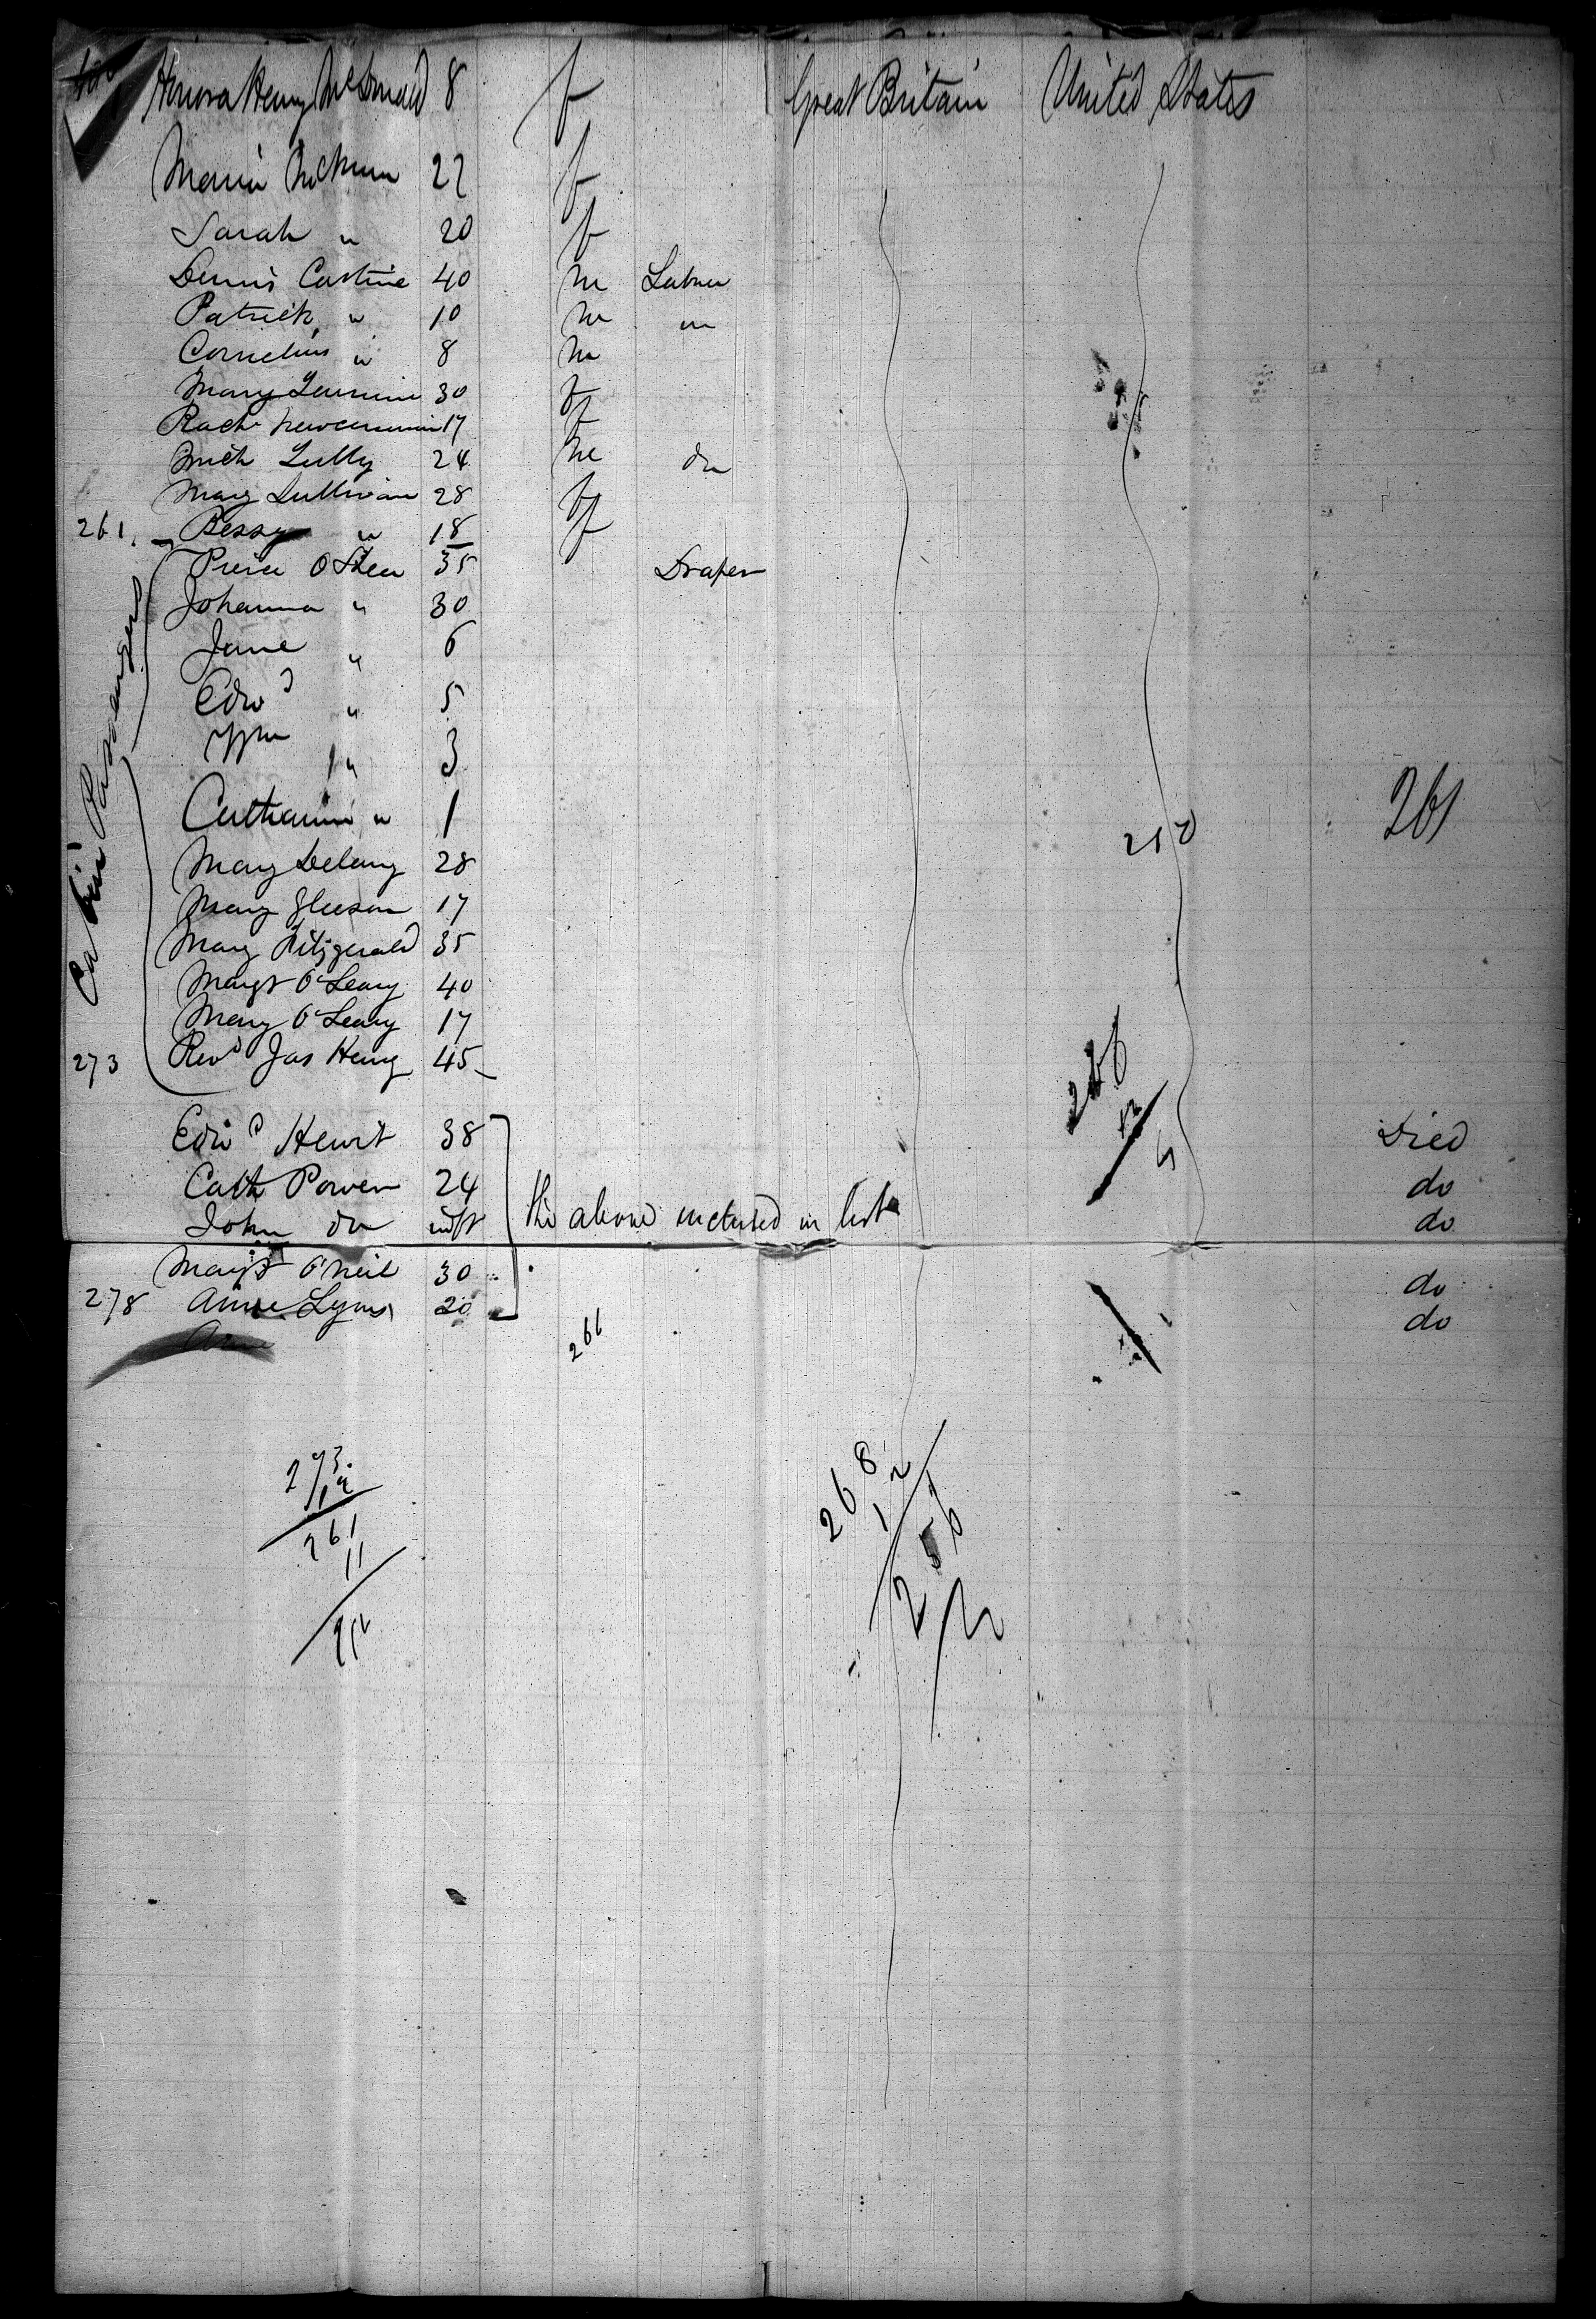 Honora Henry McDonald 8 f Great Britain United States
Maria 22 f
Sarah " 20 f
Dennis Costine 40 m Labrer
Patrick " 10 m "
Cornelius " 8 m
Mary 30 f
Rach 17 f
Mich Lully 24 m do
Mary Sullivan 28 f
261. Bessy " 18 f
Pierce O Shea 35 Draper
Johanna " 30
Jane " 6
Edwd " 5
Wm " 3
Catharine " 1
Mary Delany 28
Mary Gleeson 17
Mary Fitzgerald 35
Margt O'Leary 40
Mary O'Leary 17
273 Revd Jas Henry 45
Cabin Passengers
250
261
266
12
5
Edwd Hewit 38 Died
Cath Power 24 the above included in list do
John do inft do
Margt O'Neil 30 do
278 Anne Lyons 20 do
266
273.
12
261
11
268
12
256